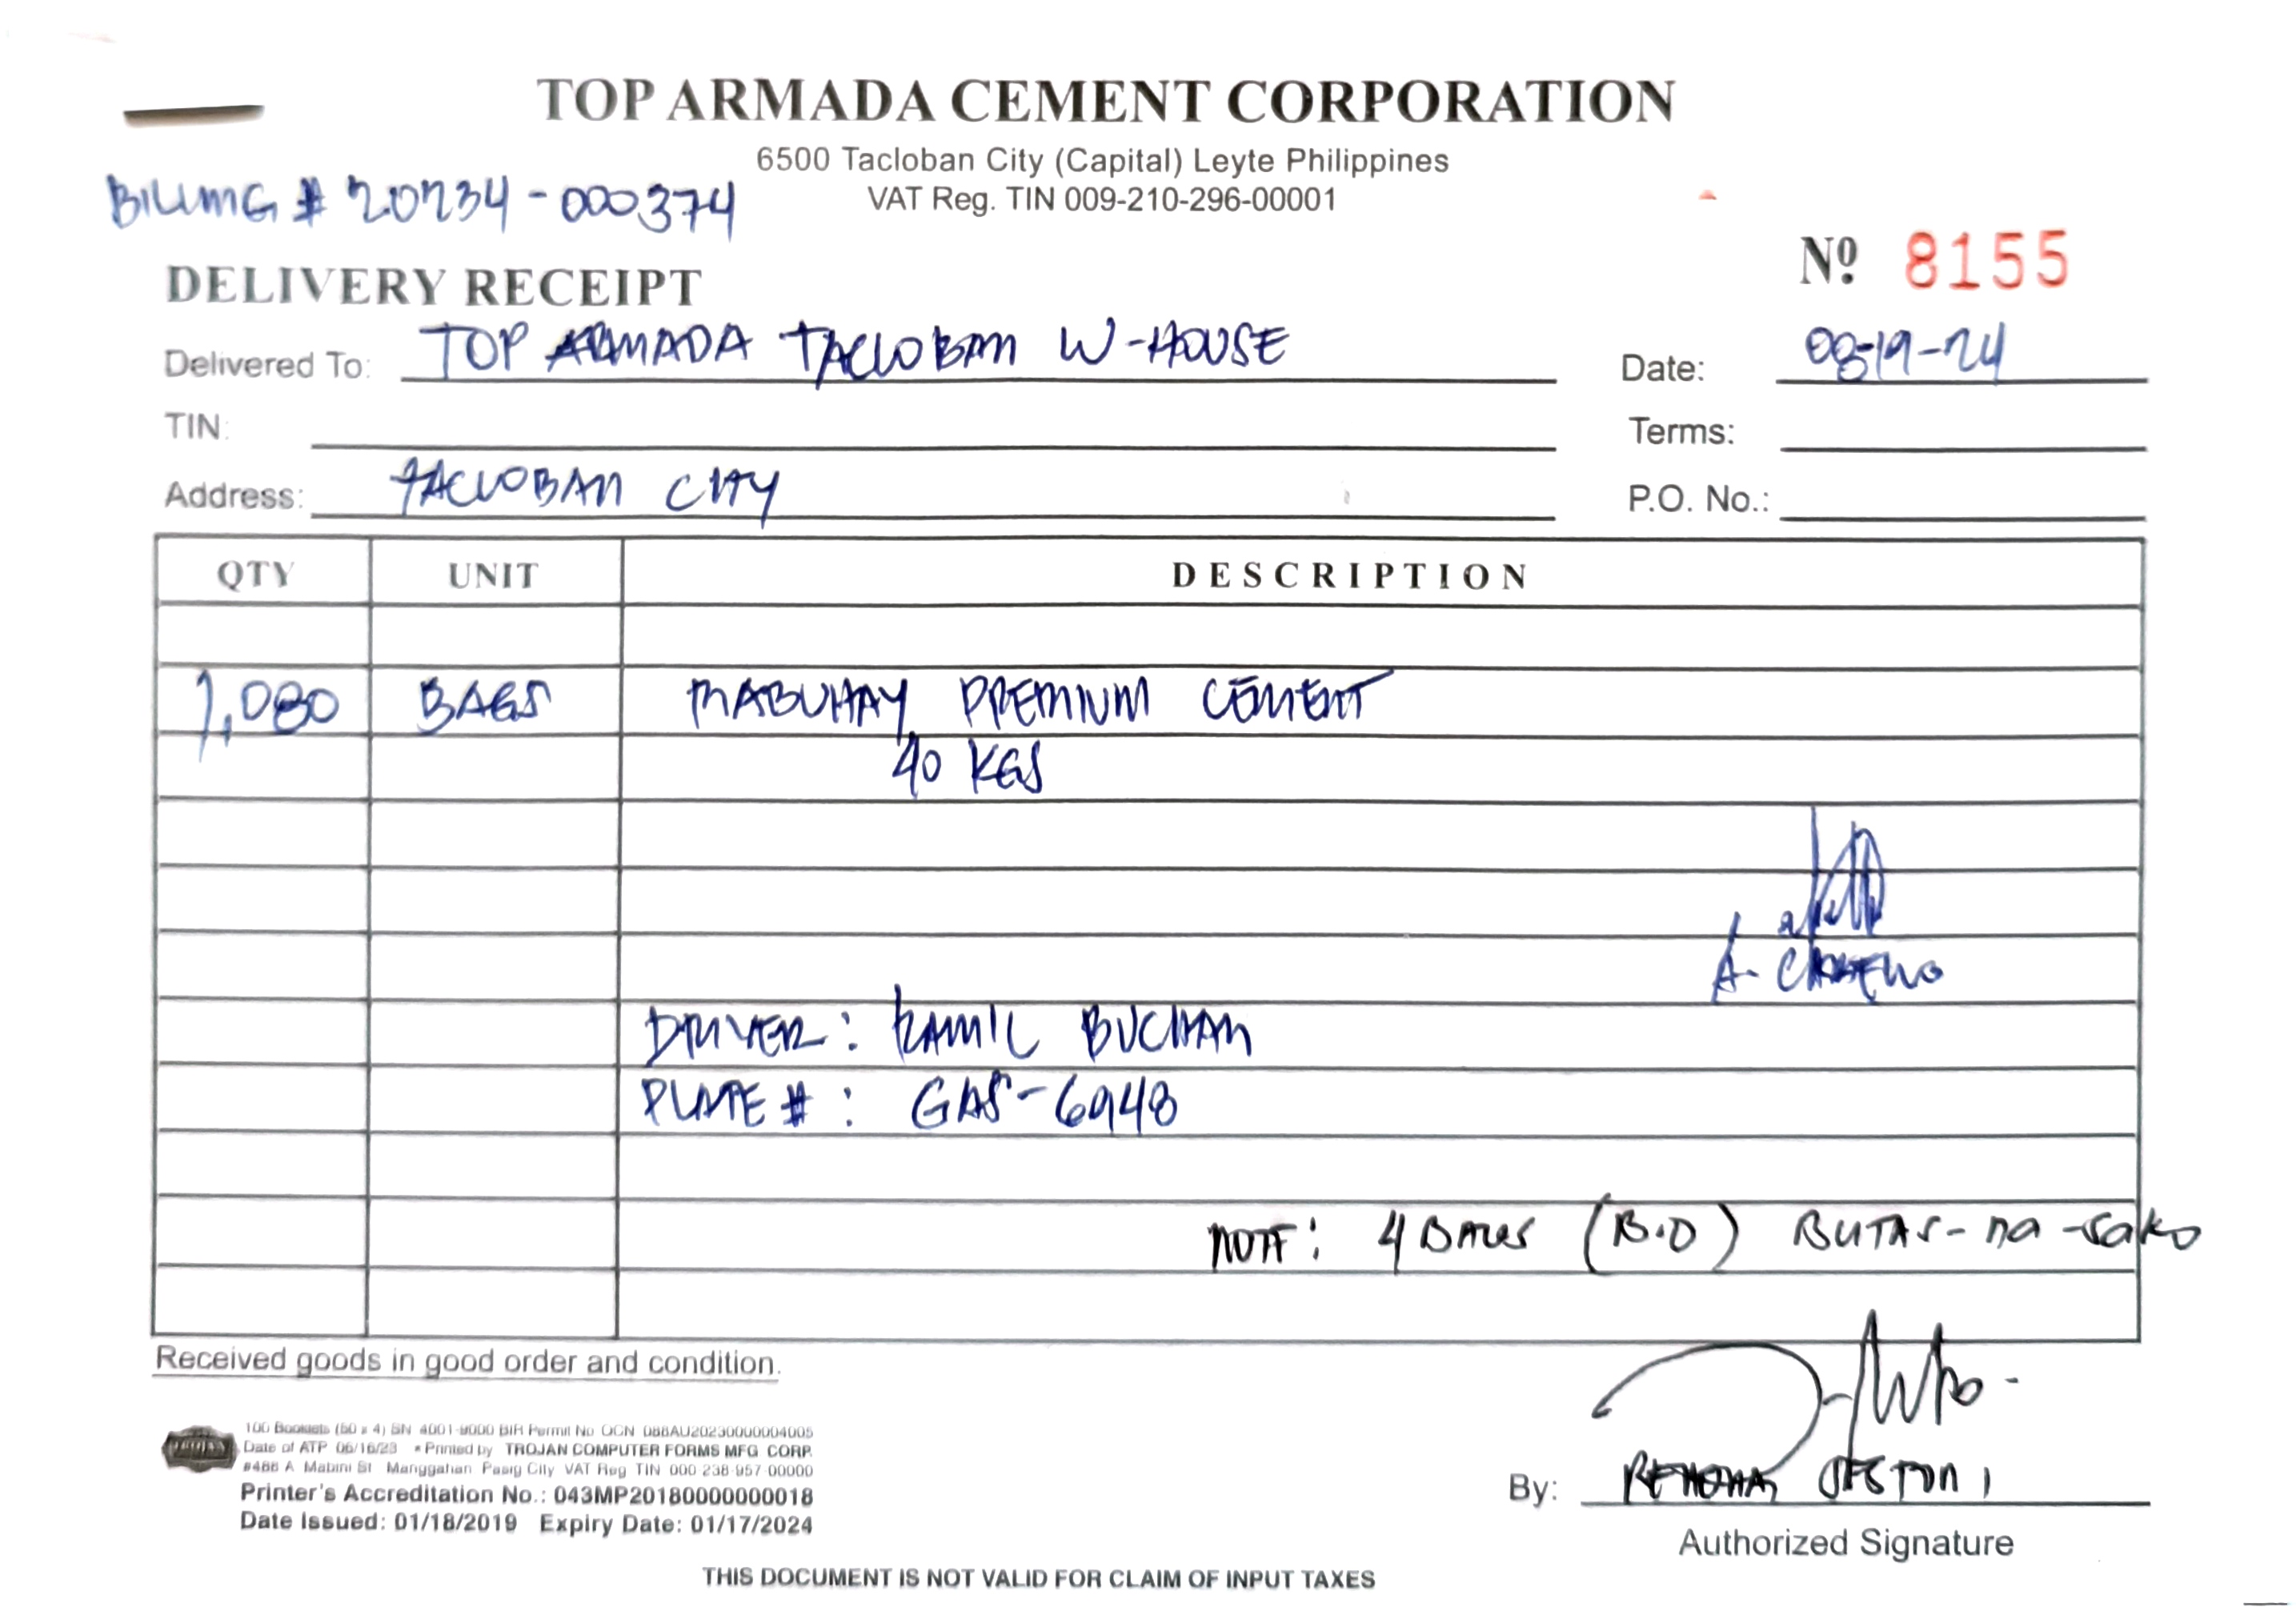 TOP ARMADA CEMENT CORPORATION
6500 Tacloban City (Capital) Leyte Philippines
VAT Reg. TIN 009-210-296-00001
BILLING # 20234-000374
Nº 8155
DELIVERY RECEIPT
Delivered To: TOP ARMADA TACLOBAN W-HOUSE Date: 08-19-24
TIN: Terms:
Address: TACLOBAN CITY P.O. No.:
QTY UNIT DESCRIPTION
1,080 BAGS MABUHAY PREMIUM CEMENT
40 KGS
A.
DRIVER: RAMIL BUCHAN
PLATE #: GAS-6948
NOTE: 4 BAGS (B.O) BUTAS-na-sako
Received goods in good order and condition.
100 Booklets (50 x 4) SN 4001-9000 BIR Permit No OCN 088AU20230000004005
Date of ATP 06/16/23 * Printed by TROJAN COMPUTER FORMS MFG CORP.
#488 A Mabini St Manggahan Pasig City VAT Reg TIN 000 238-957-00000
Printer's Accreditation No.: 043MP20180000000018
Date Issued: 01/18/2019 Expiry Date: 01/17/2024
By:
Authorized Signature
THIS DOCUMENT IS NOT VALID FOR CLAIM OF INPUT TAXES